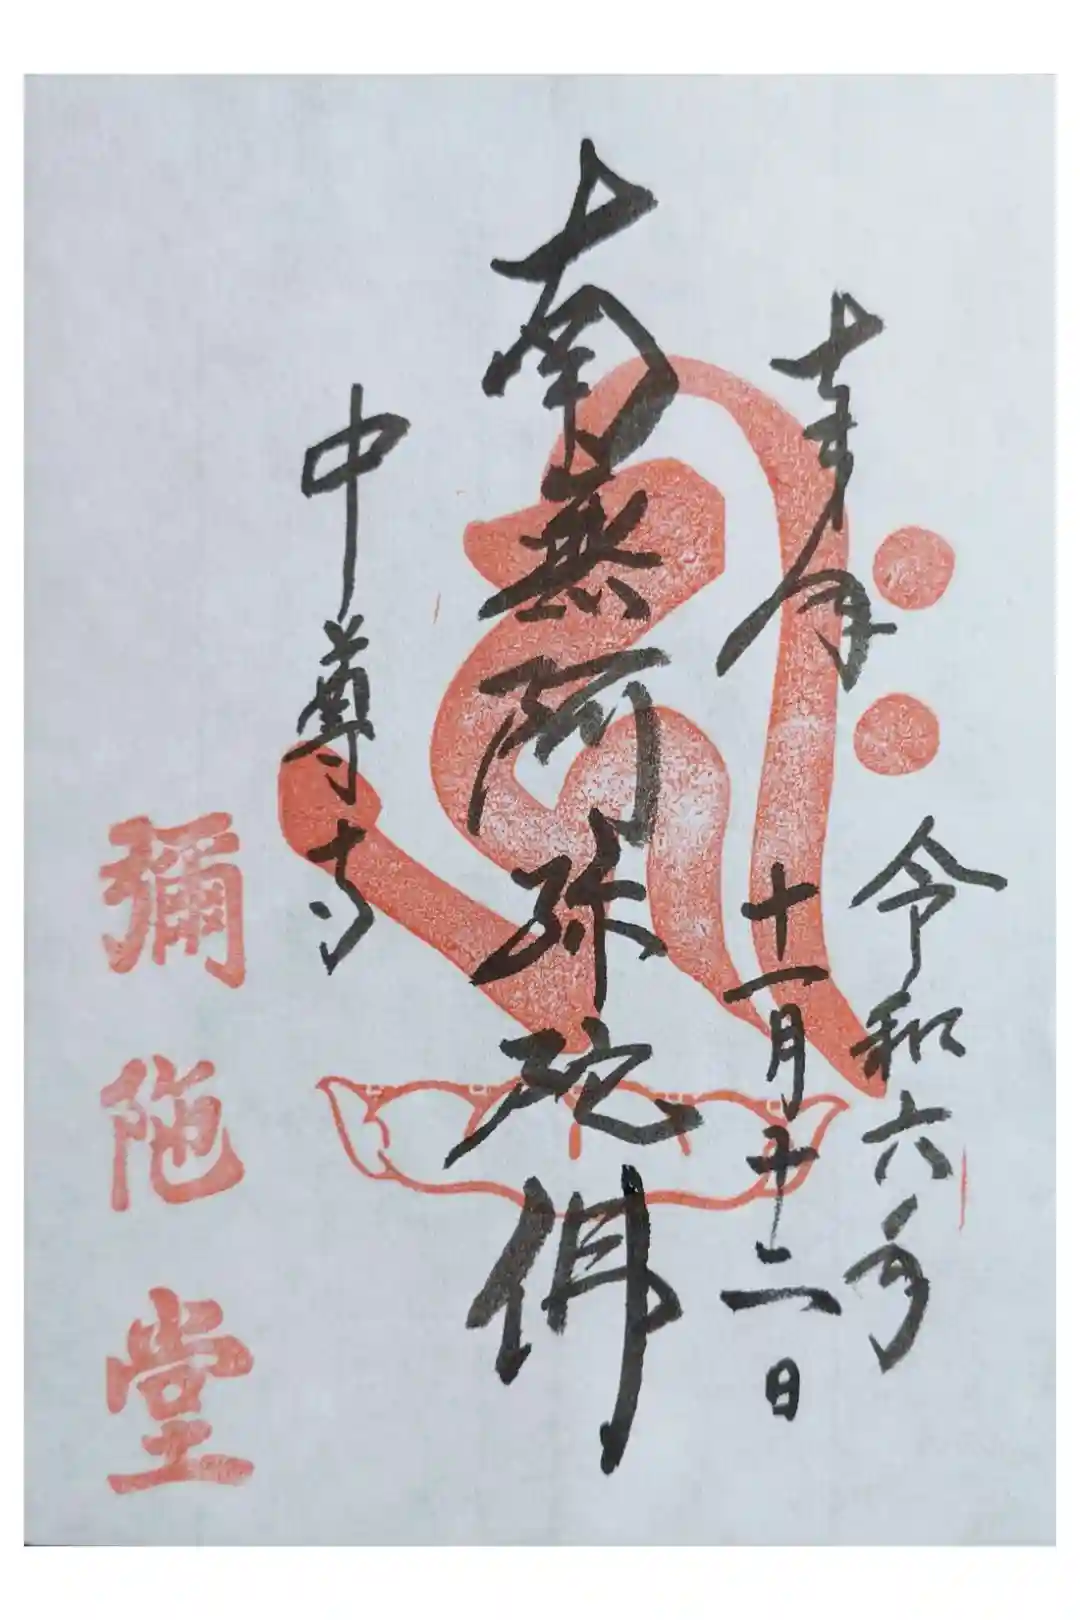 奉拝
令和六年
十一月十二日
南無阿弥陀佛
中尊寺
彌陁堂